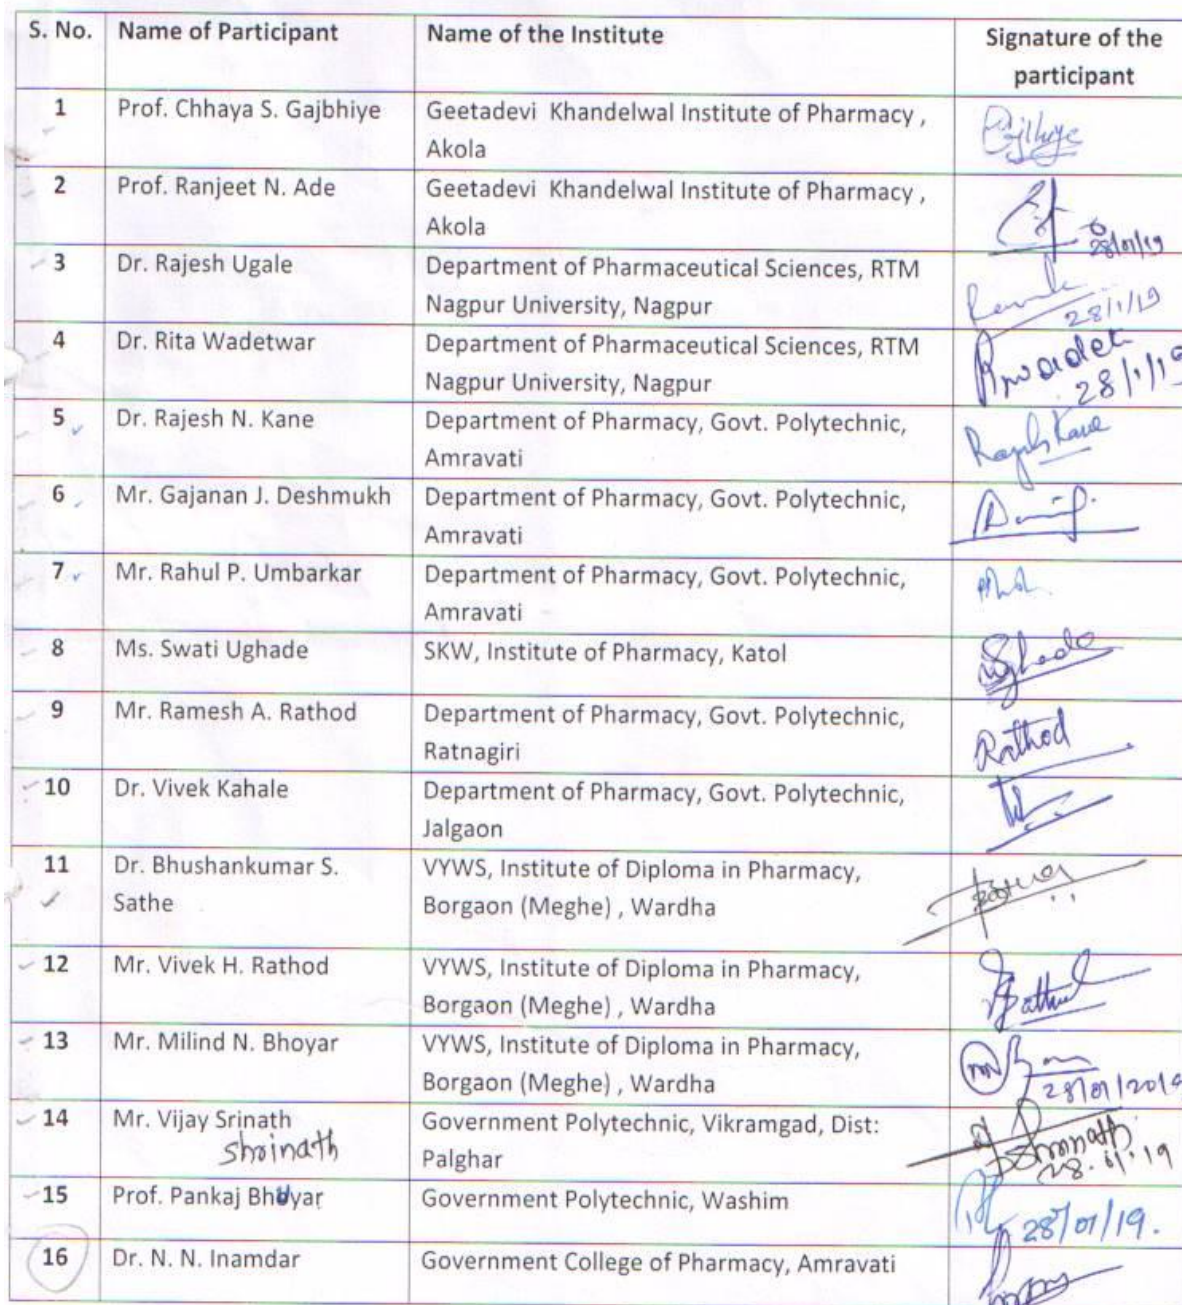 S. No. Name of Participant Name of the Institute Signature of the
participant
1 Prof. Chhaya S. Gajbhiye Geetadevi Khandelwal Institute of Pharmacy ,
Akola
2 Prof. Ranjeet N. Ade Geetadevi Khandelwal Institute of Pharmacy ,
Akola
28/01/19
3 Dr. Rajesh Ugale Department of Pharmaceutical Sciences, RTM
Nagpur University, Nagpur 28/1/19
4 Dr. Rita Wadetwar Department of Pharmaceutical Sciences, RTM
Nagpur University, Nagpur 28/1/19
5 Dr. Rajesh N. Kane Department of Pharmacy, Govt. Polytechnic, Rajesh Kane
Amravati
6 Mr. Gajanan J. Deshmukh Department of Pharmacy, Govt. Polytechnic,
Amravati
7 Mr. Rahul P. Umbarkar Department of Pharmacy, Govt. Polytechnic,
Amravati
8 Ms. Swati Ughade SKW, Institute of Pharmacy, Katol
9 Mr. Ramesh A. Rathod Department of Pharmacy, Govt. Polytechnic, Rathod
Ratnagiri
10 Dr. Vivek Kahale Department of Pharmacy, Govt. Polytechnic,
Jalgaon
11 Dr. Bhushankumar S. VYWS, Institute of Diploma in Pharmacy,
Sathe Borgaon (Meghe) , Wardha
12 Mr. Vivek H. Rathod VYWS, Institute of Diploma in Pharmacy,
Borgaon (Meghe) , Wardha
13 Mr. Milind N. Bhoyar VYWS, Institute of Diploma in Pharmacy,
Borgaon (Meghe) , Wardha 28/01/2019
14 Mr. Vijay Srinath Government Polytechnic, Vikramgad, Dist:
shrinath Palghar Shrinath
28.01.19
15 Prof. Pankaj Bhuyar Government Polytechnic, Washim
28/01/19.
16 Dr. N. N. Inamdar Government College of Pharmacy, Amravati